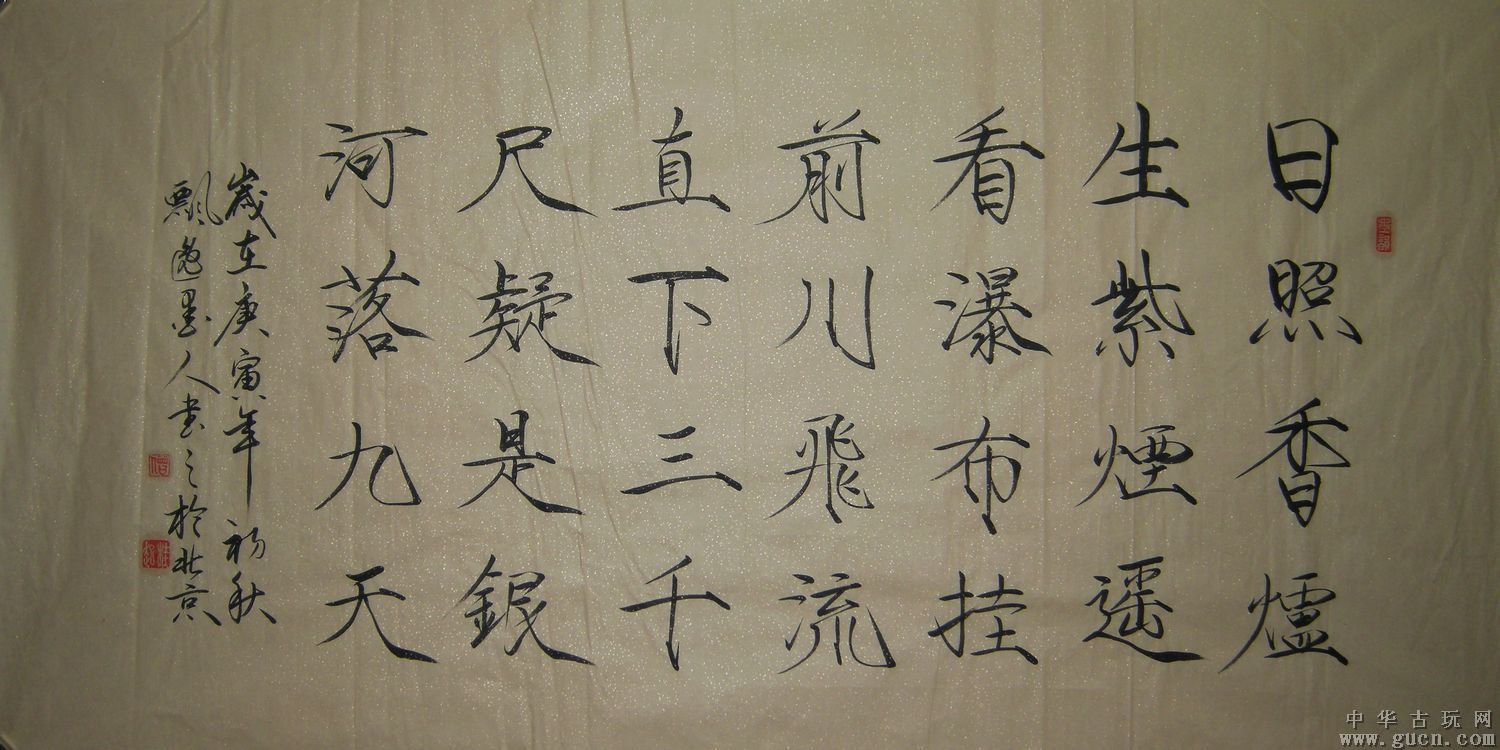 日照香爐
生紫煙遥
看瀑布挂
前川飛流
直下三千
尺疑是銀
河落九天
歲在庚寅年初秋
飄逸墨人書之於北京
中华古玩网
www.gucn.com